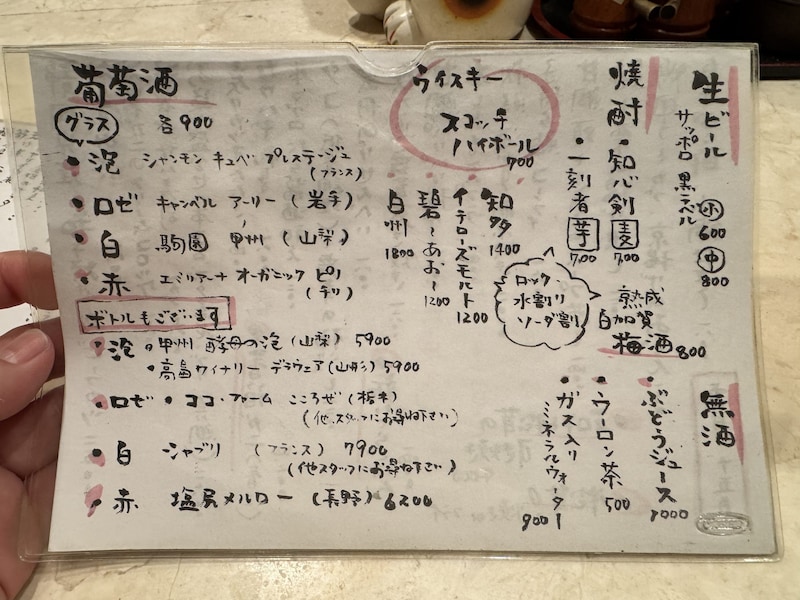 葡萄酒
グラス 各900
・泡 シャンモン キュベ プレステージュ
(フランス)
・ロゼ キャンベル アーリー (岩手)
・白 駒園 甲州 (山梨)
・赤 エミリアーナ オーガニック ピノ
(チリ)
ボトルもございます
・泡 ・甲州 酵母の泡 (山梨) 5900
・高畠ワイナリー デラウェア (山形) 5900
・ロゼ ・ココ・ファーム こころぜ (栃木)
(他、スタッフにお尋ね下さい)
・白 シャブリ (フランス) 7900
(他スタッフにお尋ね下さい)
・赤 塩尻メルロー (長野) 6200
ウイスキー
スコッチ
ハイボール
700
・知多 1400
・イチローズモルト 1200
・碧〜あお〜 1200
・白州 1800
焼酎
・知心剣 麦 700
・一刻者 芋 700
ロック
水割り
ソーダ割
熟成
白加賀
梅酒 800
生ビール
サッポロ 黒ラベル
小 600
中 800
無酒
・ぶどうジュース 1000
・ウーロン茶 500
・ガス入り
ミネラルウォーター 900